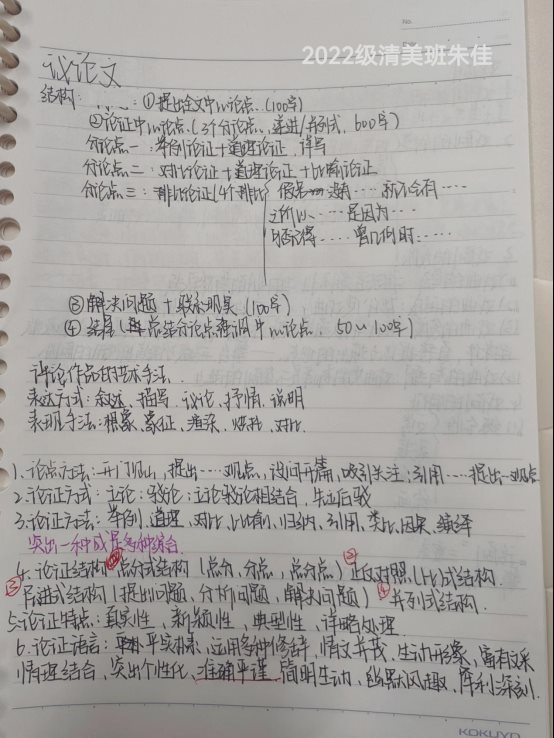 No.
2022级清美班朱佳
议论文
结构：①提出全文中心论点.(100字)
②论证中心论点.(3个分论点.递进/并列式，600字)
分论点一：举例论证+道理论证，详写
分论点二：对比论证+道理论证+比喻论证
分论点三：排比论证(4个排比 假若 没有……就不会有……
之所以……是因为……
还记得……曾几何时……
③解决问题+联系现实(100字)
④结尾(点结分论点 中心论点. 50~100字)
评论作品的艺术手法.
表达方式：叙述、描写、议论、抒情、说明
表现手法：想象、象征、渲染、烘托、对比.
1.论点方法：开门见山，提出……观点，设问开篇，吸引关注；引用……提出…观点
2.论证方式：立论；驳论；立论驳论相结合，先立后驳
3.论证方法：举例、道理、对比、比喻、归纳、引用、类比、因果、演绎
突出一种或是多种综合.
4.论证结构①总分式结构(总分、分总、总分总)②正反对照(比)式结构.
③层进式结构(提出问题、分析问题、解决问题)④并列式结构.
5.论证特点：真实性、新颖性、典型性、详略处理.
6.论证语言：平实朴素、运用多种修辞，情文并茂、生动形象、富有文采
情理结合、突出个性化、准确严谨、简明生动、幽默风趣、犀利深刻.
KOKUYO